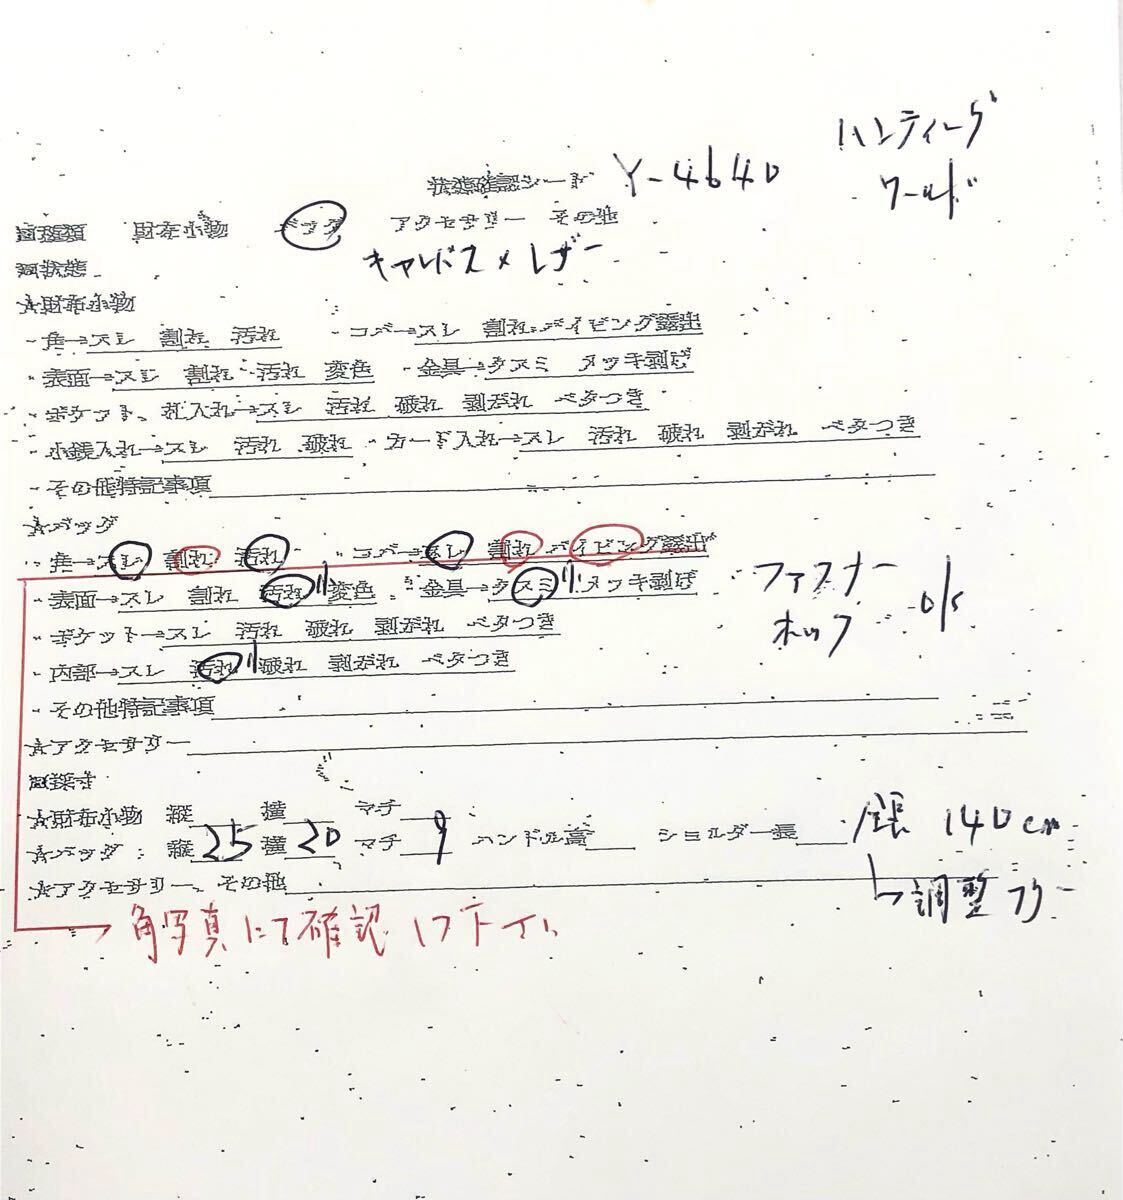 ハンティーグ
ワールド
状態確認シート Y-4640
□種類 財布小物 バッグ アクセサリー その他
キャンバス×レザー
□状態
☆財布小物
・角→スレ 割れ 汚れ ・コバ→スレ 割れ パイピング露出
・表面→スレ 割れ 汚れ 変色 ・金具→クスミ メッキ剥げ
・ポケット、札入れ→スレ 汚れ 破れ 剥がれ ベタつき
・小銭入れ→スレ 汚れ 破れ ・カード入れ→スレ 汚れ 破れ 剥がれ ベタつき
・その他特記事項
☆バッグ
・角→スレ 割れ 汚れ ・コバ→スレ 割れ パイピング露出
・表面→スレ 割れ 汚れ 小 変色 ・金具→クスミ 小 メッキ剥げ
ファスナー
ホック o/s
・ポケット→スレ 汚れ 破れ 剥がれ ベタつき
・内部→スレ 汚れ 小 破れ 剥がれ ベタつき
・その他特記事項
☆アクセサリー
□採寸
☆財布小物 縦 横 マチ
☆バッグ: 縦 25 横 20 マチ 9 ハンドル高 ショルダー長 全長 140cm
↳調整フリー
☆アクセサリー、その他
→角写真にて確認して下さい